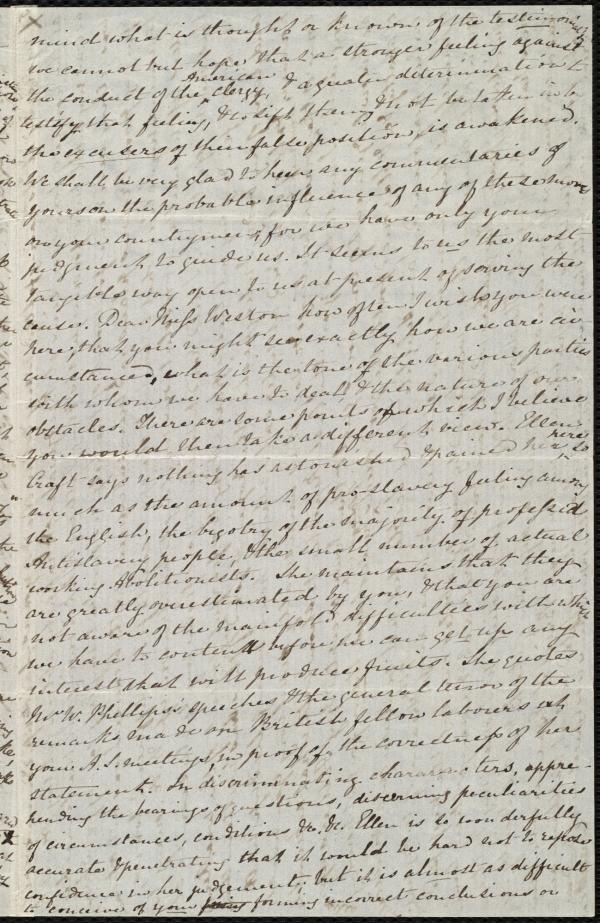 mind what is thought or known of the testimonies
we cannot but hope that a stronger feeling against
the conduct of the American clergy, & a greater determination to
testify that feeling, & to sift them, & not be taken in by
the excusers of their false position, is awakened.
We shall be very glad to hear any commentaries of
yours on the probable influence of any of these moves
on your countrymen, for we have only your
judgment to guide us. It seems to us the most
tangible way open to us at present of serving the
cause. Dear Miss Weston how often I wish you were
here, that you might see exactly how we are cir
cumstanced, what is the tone of the various parties
with whom we have to deal, & the nature of our
obstacles. There are some points of which I believe
you would then take a different view. Ellen
Craft says nothing has astonished & pained her here so
much as the amount of pro-slavery feeling among
the English, the bigotry of the majority of professed
Antislavery people, & the small number of actual
working Abolitionists. She maintains that they
are greatly overestimated by you, & that you are
not aware of the manifold difficulties with which
we have to contend before we can get up any
interest that will produce fruits. She quotes
Mr. W. Phillips's speeches & the general tenor of the
remarks made on British fellow labourers at
your A.S. meetings in proof of the correctness of her
statement. In discriminating characters, appre-
hending the bearings of questions, discerning peculiarities
of circumstances, conditions &c. &c. Ellen is so wonderfully
accurate & penetrating that it would be hard not to repose
confidence in her judgement; but it is almost as difficult
to conceive of your forming incorrect conclusions or